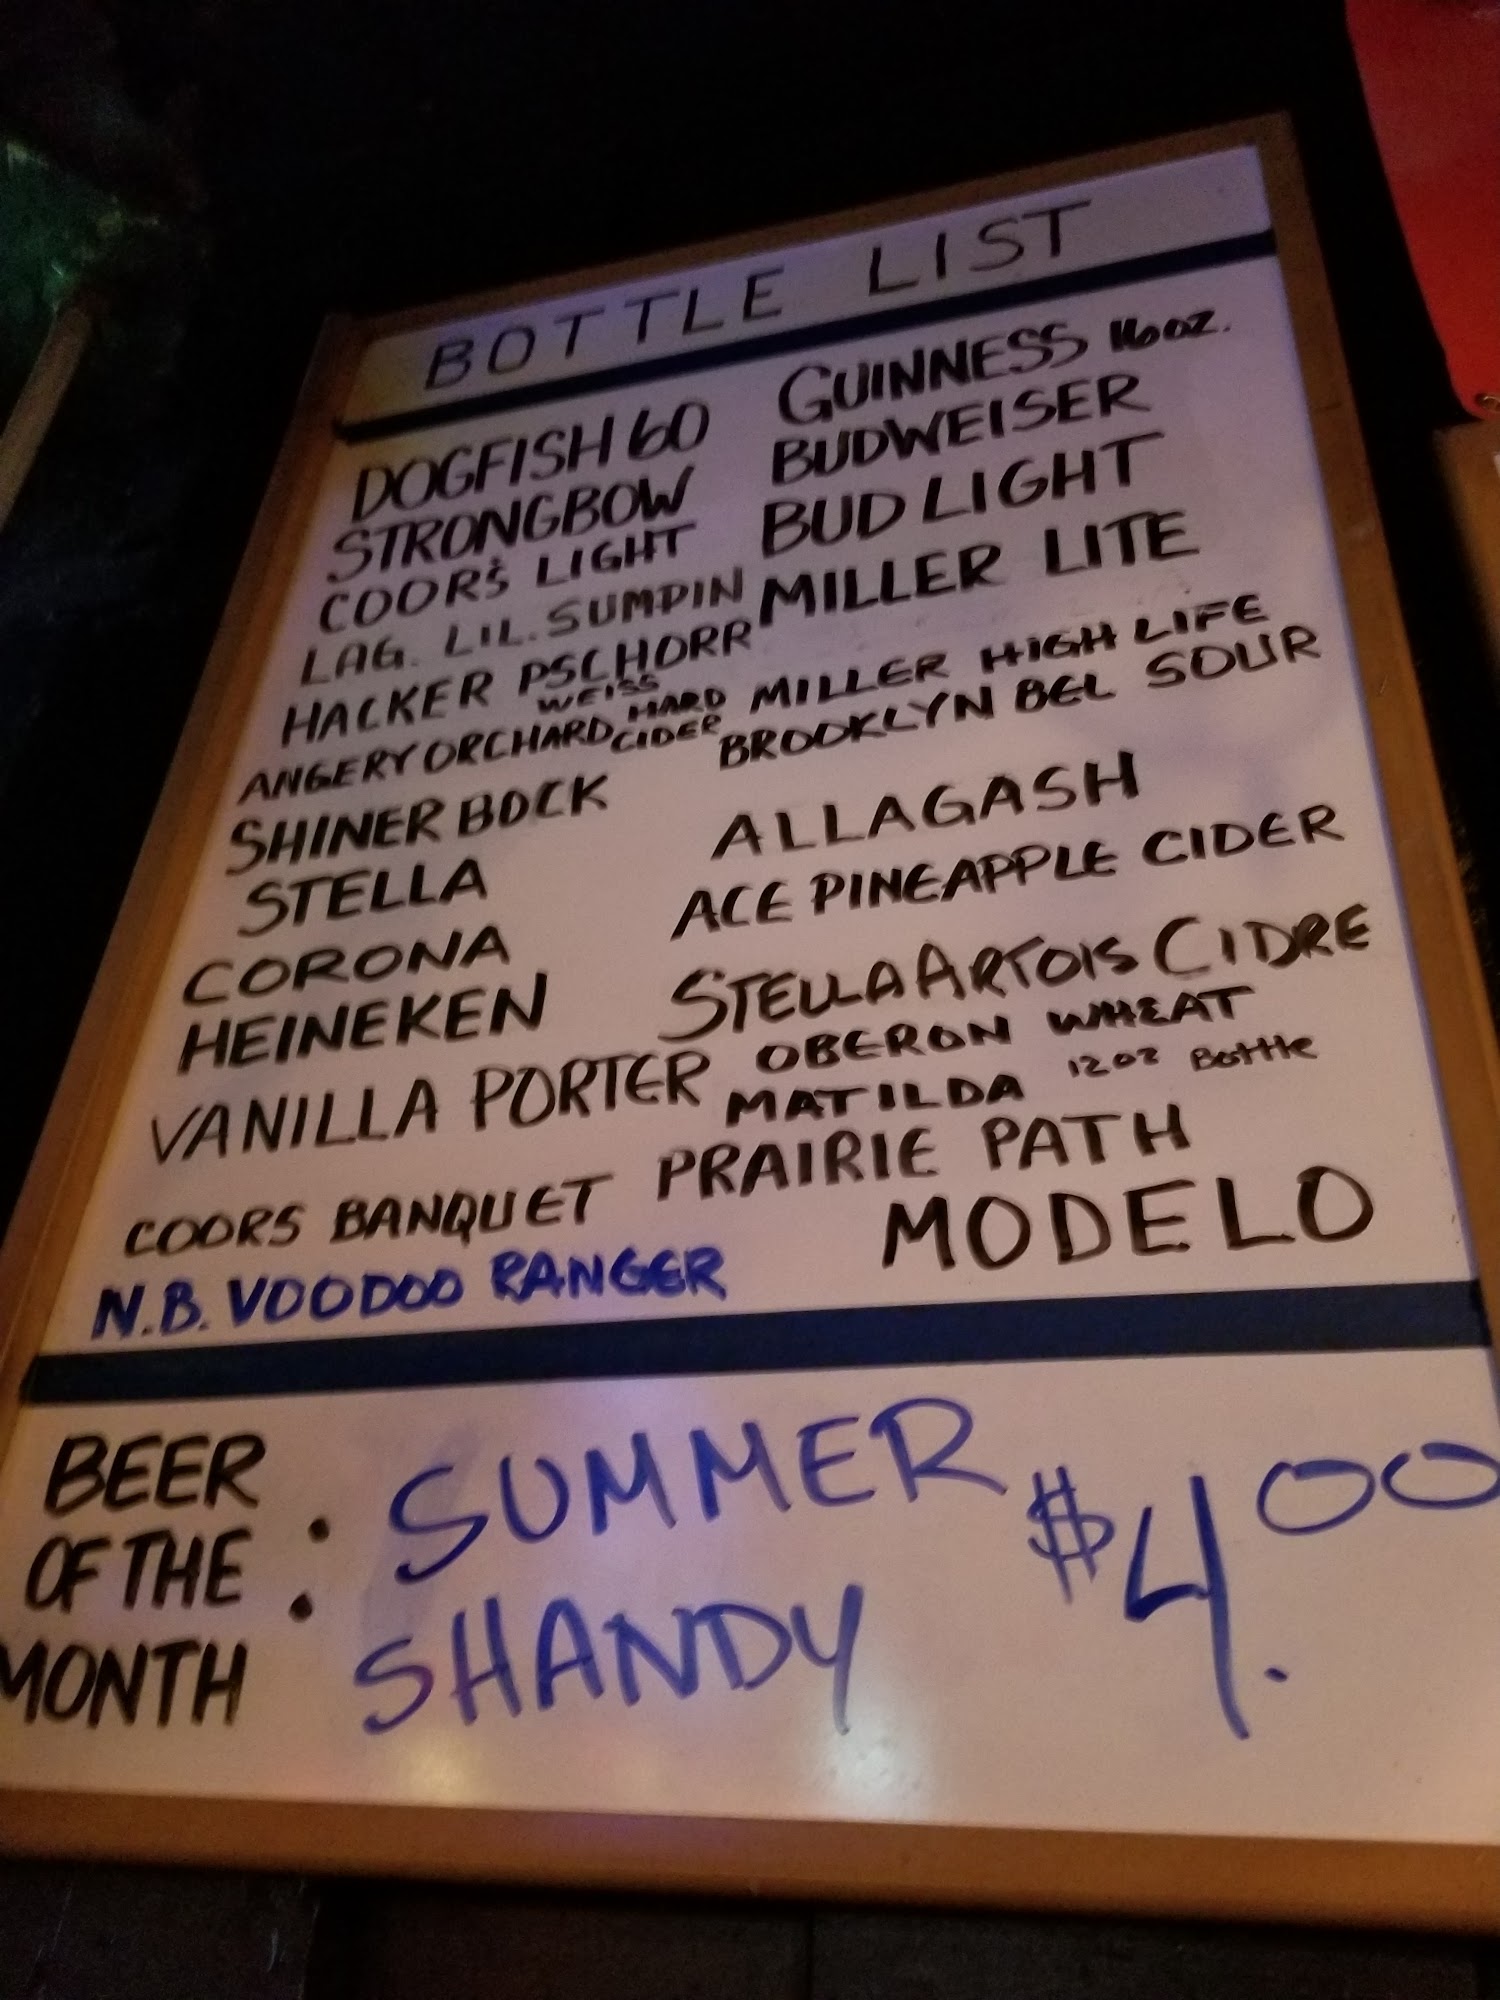 BOTTLE LIST
DOGFISH 60
STRONGBOW
COORS LIGHT
LAG. LIL. SUMPIN
HACKER PSCHORR
WEISS
ANGERY ORCHARD HARD
CIDER
SHINER BOCK
STELLA
CORONA
HEINEKEN
VANILLA PORTER
COORS BANQUET
N.B. VOODOO RANGER
GUINNESS 16oz.
BUDWEISER
BUD LIGHT
MILLER LITE
MILLER HIGH LIFE
BROOKLYN BEL SOUR
ALLAGASH
ACE PINEAPPLE CIDER
STELLA ARTOIS CIDRE
OBERON WHEAT
MATILDA 12oz Bottle
PRAIRIE PATH
MODELO
BEER
OF THE
MONTH :
SUMMER
SHANDY
$4.00